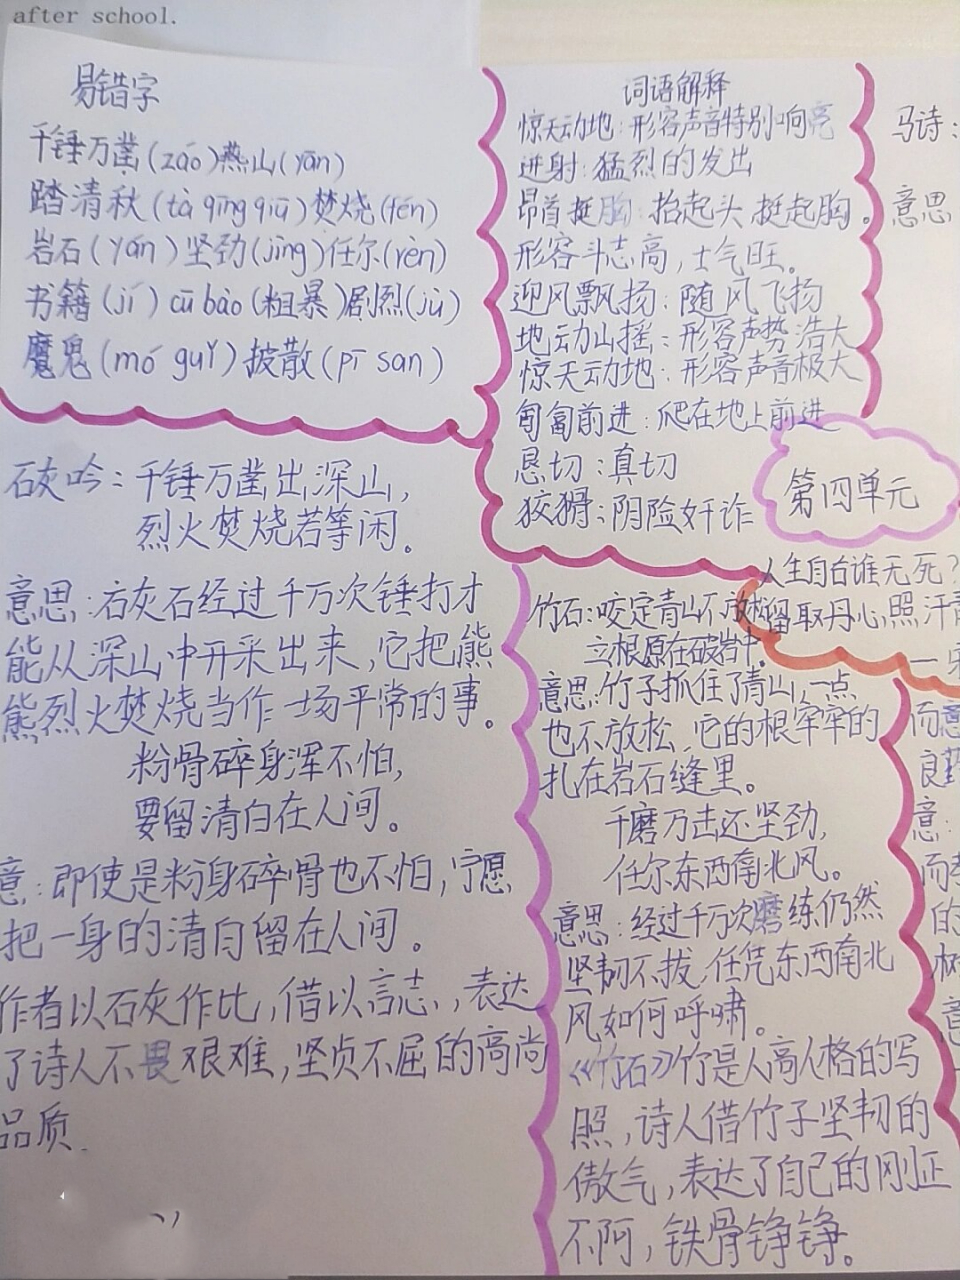 after school.
易错字
千锤万凿(záo)燕山(yān)
踏清秋(tà qīng qiū)焚烧(fén)
岩石(yán)坚劲(jìng)任尔(rèn)
书籍(jí)cū bào(粗暴)剧烈(jù)
魔鬼(mó guǐ)披散(pī san)
石灰吟:千锤万凿出深山,
烈火焚烧若等闲。
意思:石灰石经过千万次锤打才
能从深山中开采出来,它把熊
熊烈火焚烧当作一场平常的事。
粉骨碎身浑不怕,
要留清白在人间。
意:即使是粉身碎骨也不怕,宁愿
把一身的清白留在人间。
作者以石灰作比,借以言志,表达
了诗人不畏艰难,坚贞不屈的高尚
品质.
词语解释
惊天动地:形容声音特别响亮
迸射:猛烈的发出
昂首挺胸:抬起头,挺起胸。
形容斗志高,士气旺。
迎风飘扬:随风飞扬
地动山摇:形容声势浩大
惊天动地:形容声音极大
匍匐前进:爬在地上前进
恳切:真切
狡猾:阴险奸诈
第四单元
竹石:咬定青山不放松
立根原在破岩中。
意思:竹子抓住了青山,一点
也不放松,它的根牢牢的
扎在岩石缝里。
千磨万击还坚劲,
任尔东西南北风。
意思:经过千万次磨练仍然
坚韧不拔,任凭东西南北
风如何呼啸。
《竹石》竹是人高人格的写
照,诗人借竹子坚韧的
傲气,表达了自己的刚正
不阿,铁骨铮铮。
马诗:
意思
人生自古谁无死?
留取丹心,照汗青
一
而意
良
意:
而
的
树
意